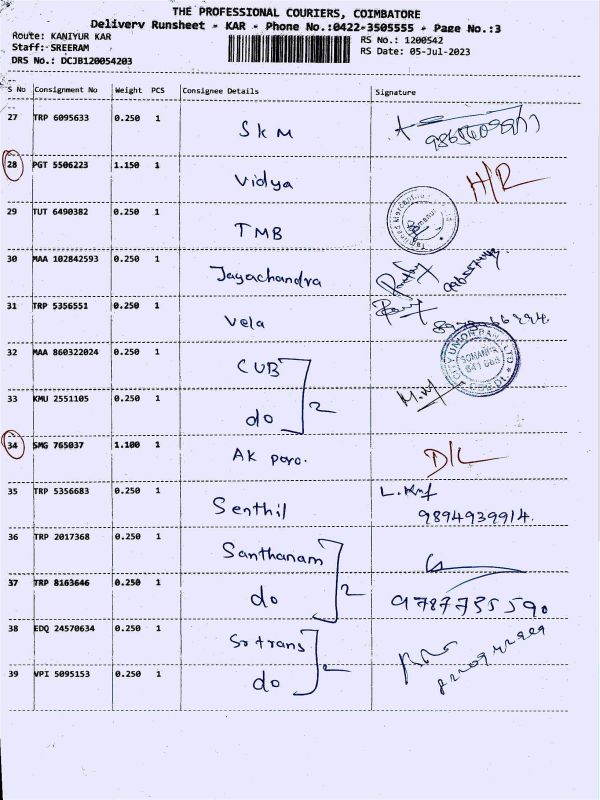 THE PROFESSIONAL COURIERS, COIMBATORE
Delivery Runsheet - KAR - Phone No.:0422-3505555 - Page No.:3
Route: KANIYUR KAR RS No.: 1200542
Staff: SREERAM RS Date: 05-Jul-2023
DRS No.: DCJB120054203
S No Consignment No Weight PCS Consignee Details Signature
27 TRP 6095633 0.250 1 SKM
28 PGT 5506223 1.150 1 Vidya H/R
29 TUT 6490382 0.250 1 TMB
30 MAA 102842593 0.250 1 Jayachandra
31 TRP 5356551 0.250 1 Vela
32 MAA 860322024 0.250 1 CUB UNION BANK LTD
33 KMU 2551105 0.250 1 do 2
34 SMG 765037 1.100 1 AK poro. D/L
35 TRP 5356683 0.250 1 Senthil 9894939914.
36 TRP 2017368 0.250 1 Santhanam
37 TRP 8163646 0.250 1 do 2 9787735590
38 EDQ 24570634 0.250 1 Sotrans
39 VPI 5095153 0.250 1 do 2